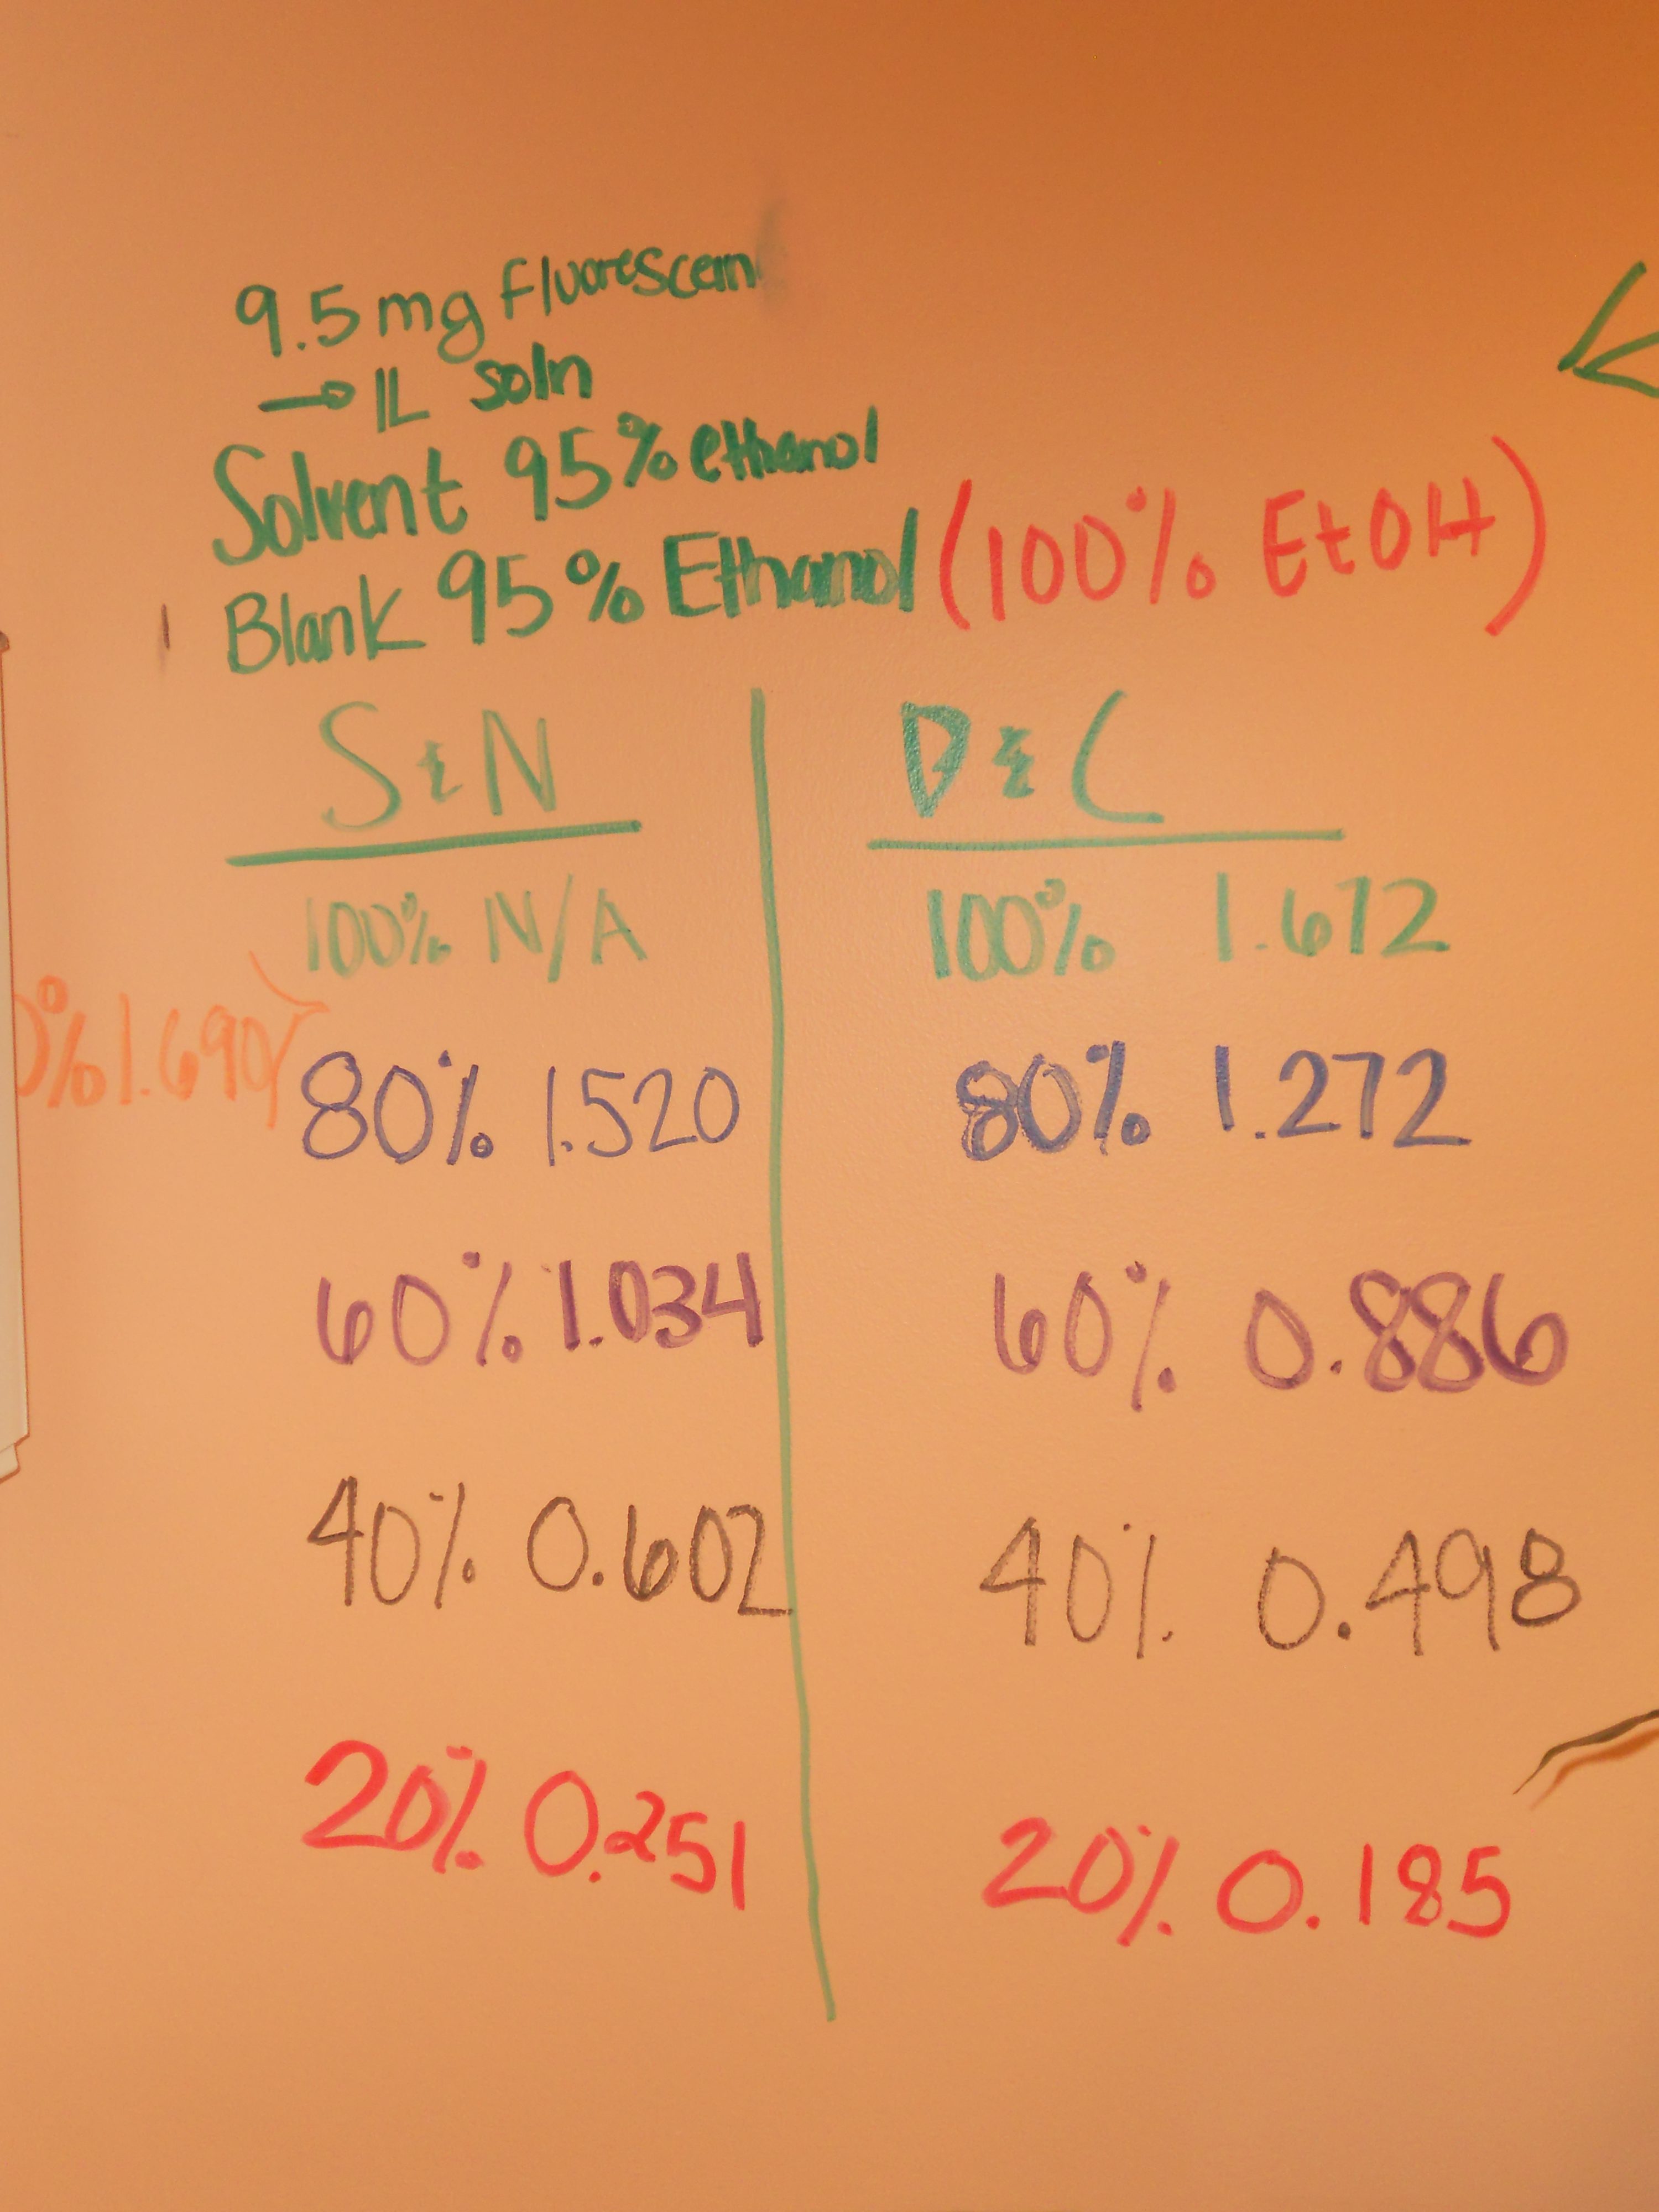 9.5 mg Fluorescein
→ 1L soln
Solvent 95% ethanol
Blank 95% Ethanol (100% EtOH)
S & N
D & C
100% N/A
100% 1.672
% 1.690
80% 1.520
80% 1.272
60% 1.034
60% 0.886
40% 0.602
40% 0.498
20% 0.251
20% 0.185